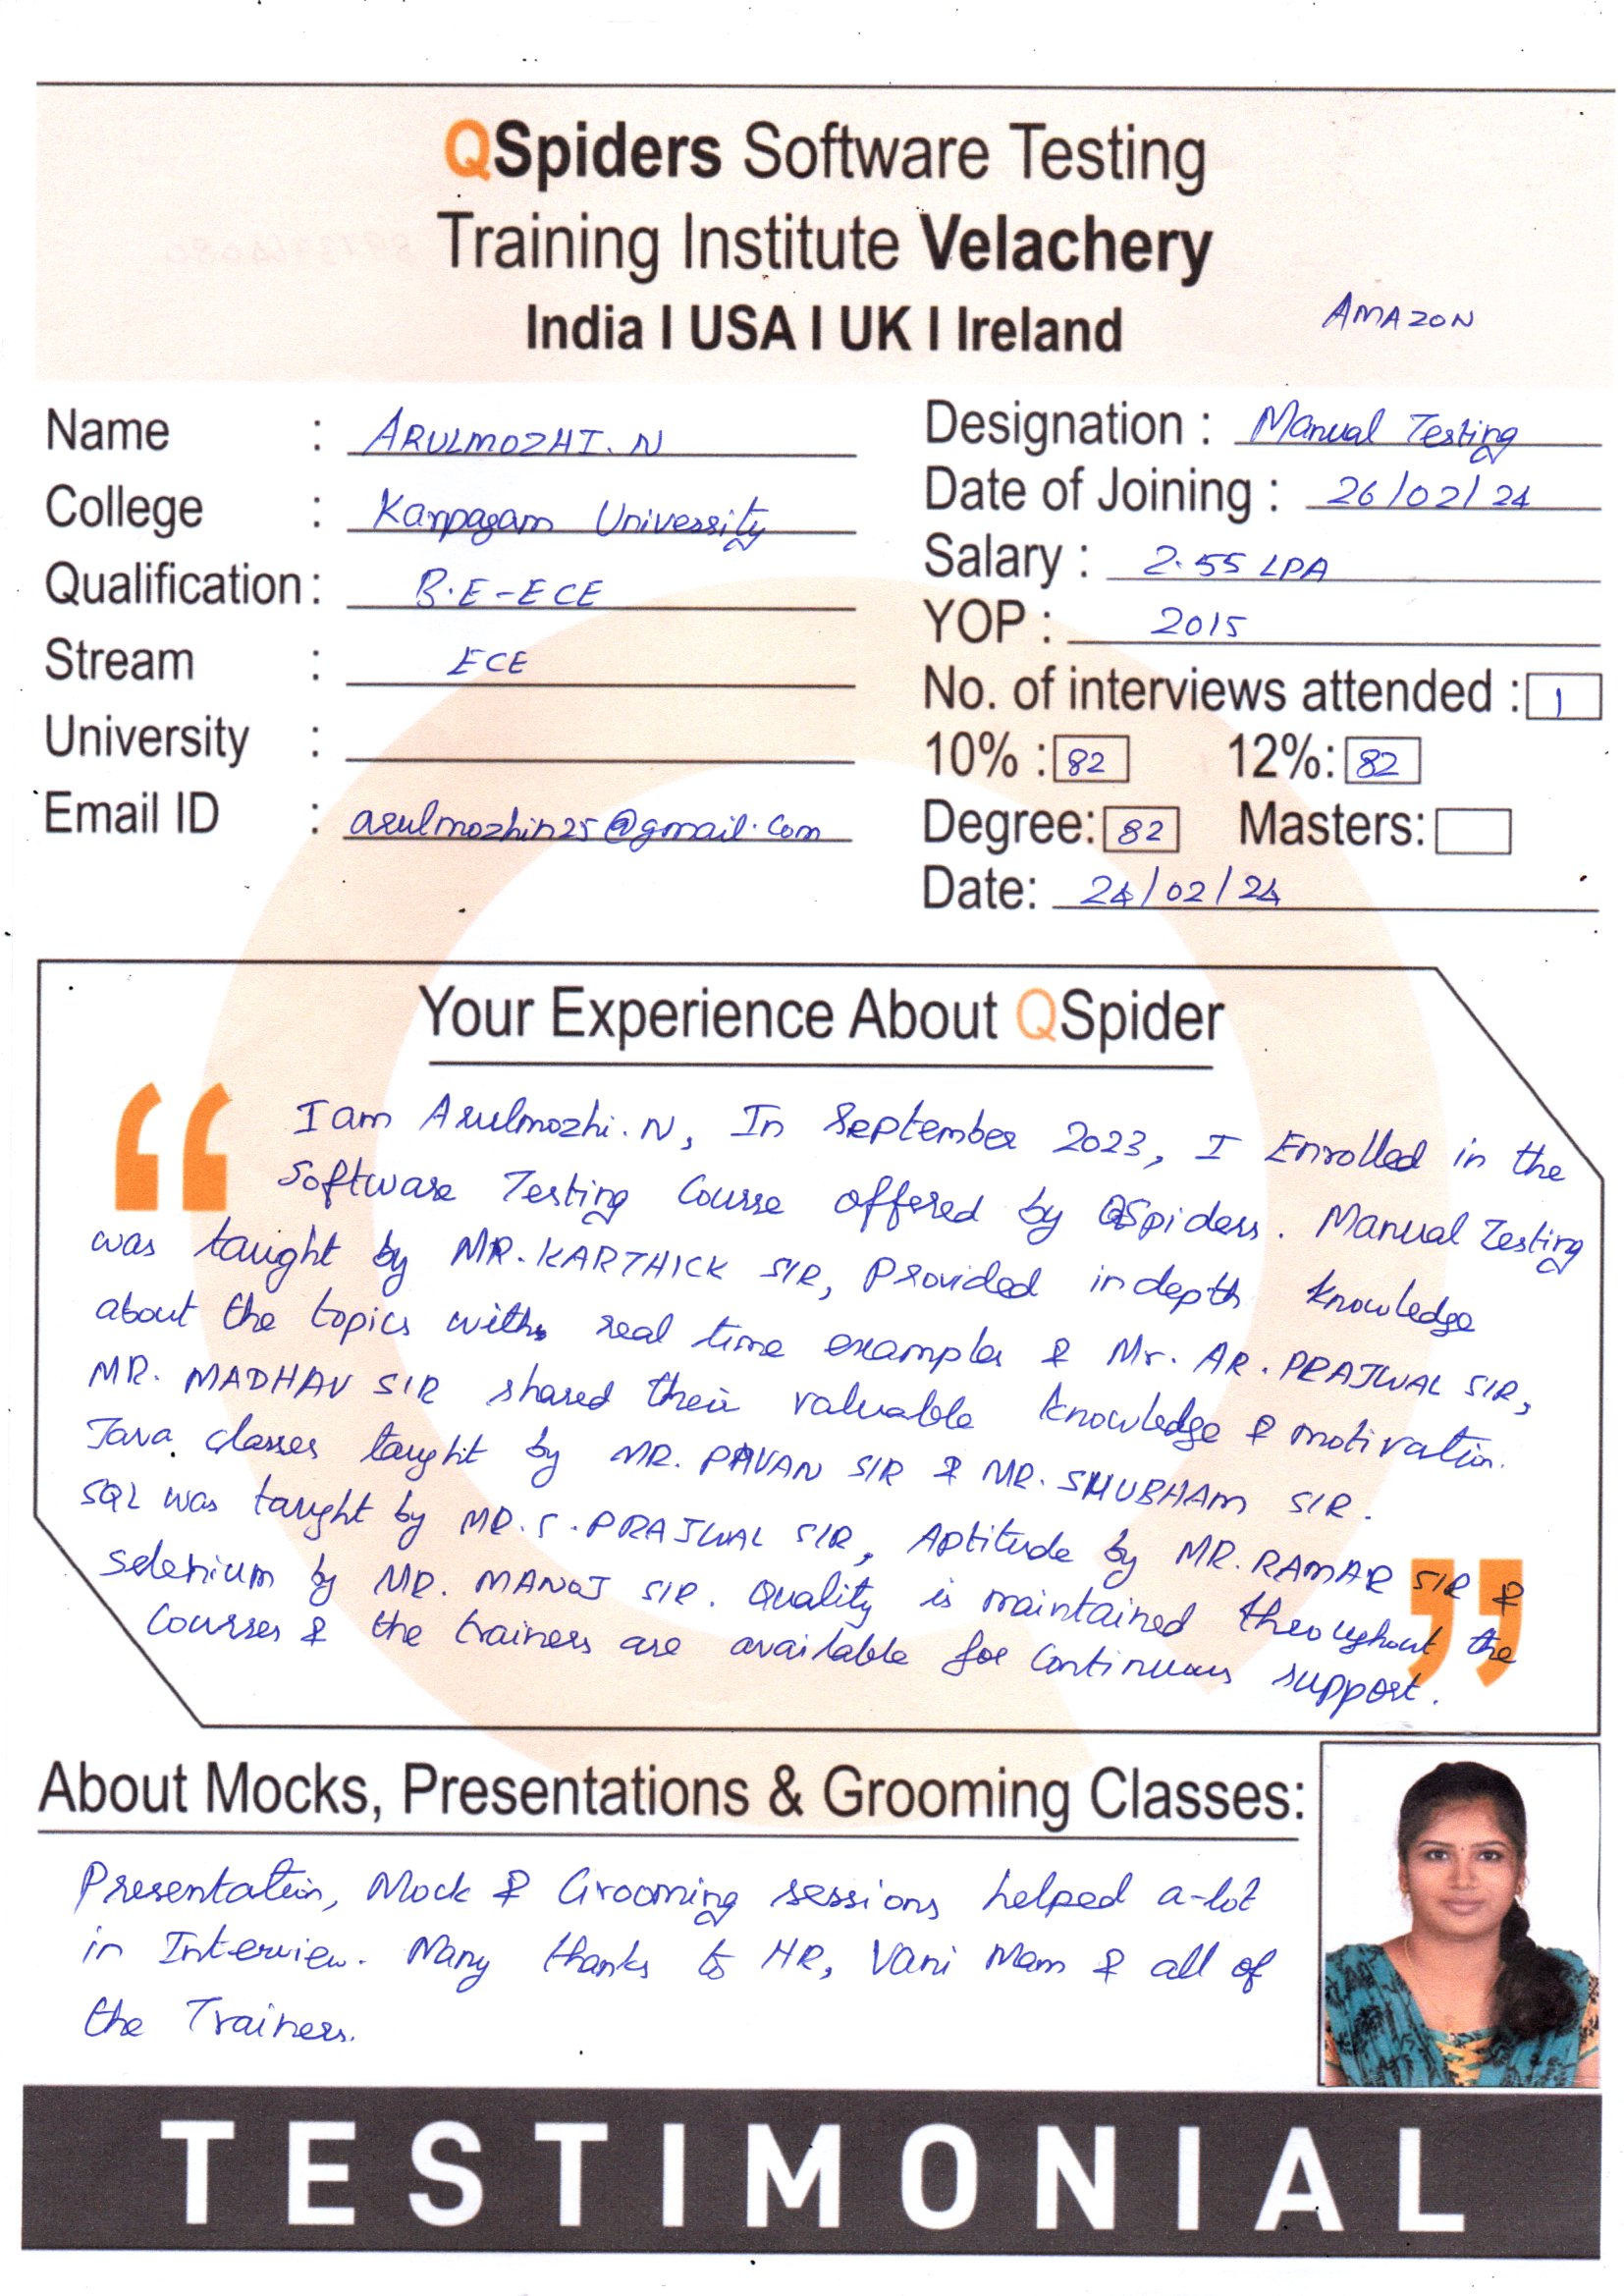 QSpiders Software Testing
Training Institute Velachery
India I USA I UK I Ireland
AMAZON
Name : ARULMOZHI. N
College : Karpagam University
Qualification : B.E-ECE
Stream : ECE
University :
Email ID : arulmozhin25@gmail.com
Designation : Manual Testing
Date of Joining : 26/02/24
Salary : 2.55 LPA
YOP : 2015
No. of interviews attended : 1
10% : 82 12%: 82
Degree: 82 Masters:
Date: 24/02/24
Your Experience About QSpider
I am Arulmozhi. N, In September 2023, I Enrolled in the
Software Testing Course offered by QSpiders. Manual Testing
was taught by MR. KARTHICK SIR, Provided indepth knowledge
about the topics with real time examples & Mr. AR. PRAJWAL SIR,
MR. MADHAV SIR shared their valuable knowledge & motivation.
Java classes taught by MR. PAVAN SIR & MR. SHUBHAM SIR.
SQL was taught by MR. S. PRAJWAL SIR, Aptitude by MR. RAMAR SIR &
Selenium by MR. MANOJ SIR. Quality is maintained throughout the
Courses & the trainers are available for Continuous support.
About Mocks, Presentations & Grooming Classes:
Presentation, Mock & Grooming sessions helped a-lot
in Interview. Many thanks to HR, Vani Mam & all of
the Trainers.
TESTIMONIAL